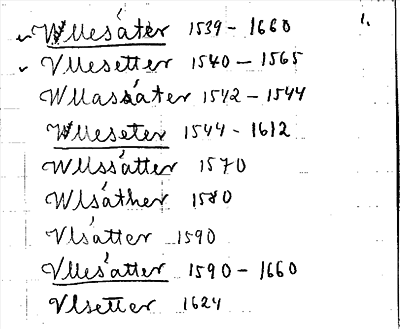 1.
Wllesáter 1539-1660
Vllesetter 1540-1565
Wllasáter 1542-1544
Wlleseter 1544-1612
Wllsátter 1570
Wlsáther 1580
Vlsátter 1590
Vllesátter 1590-1660
Vlsetter 1624